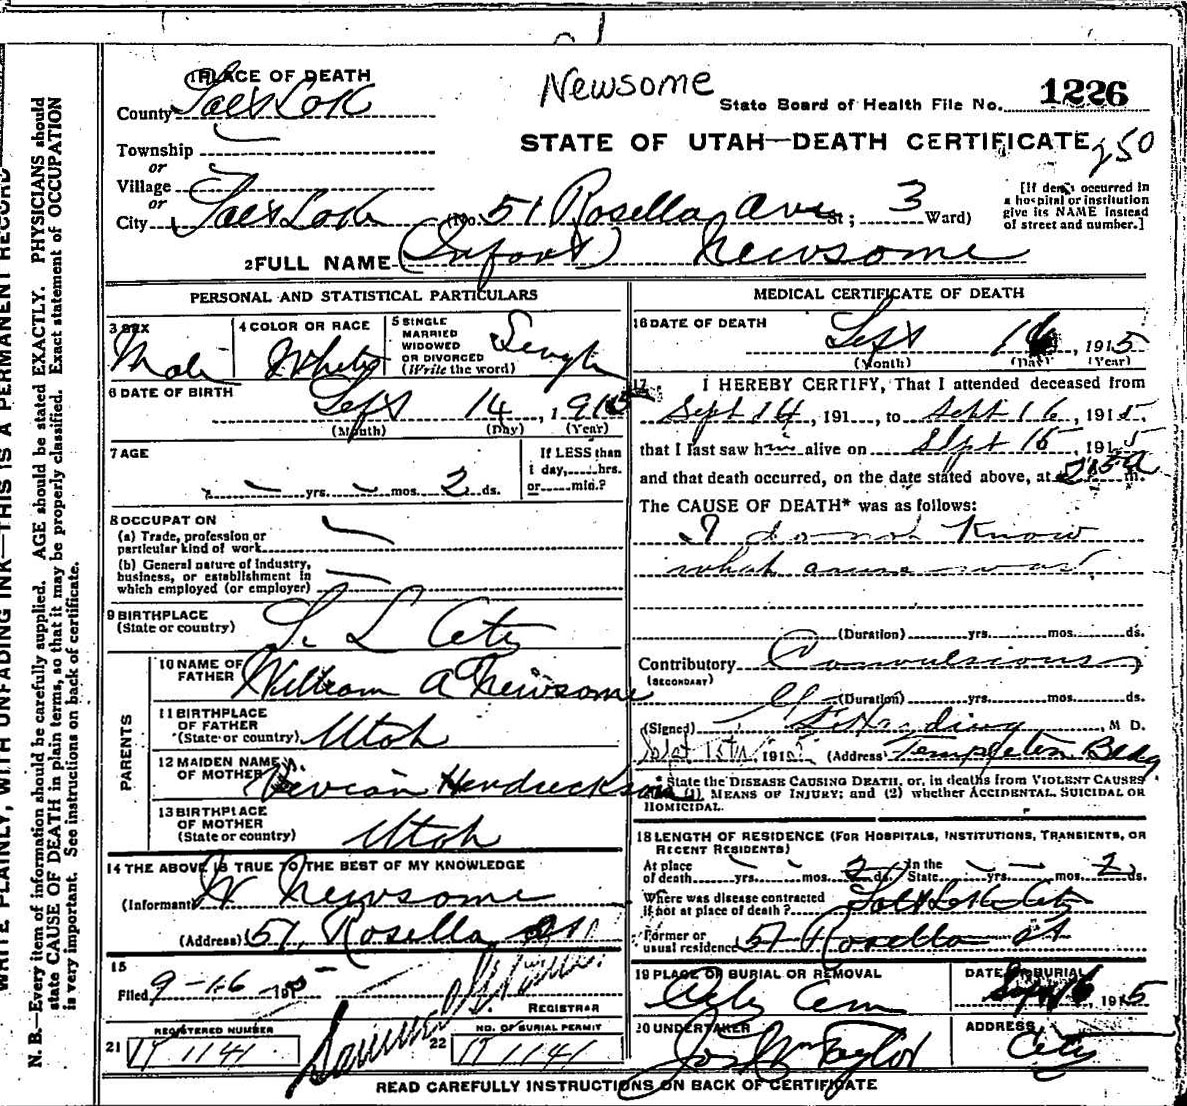 Newsome
1 PLACE OF DEATH
County Salt Lake
State Board of Health File No. 1226
Township
or
STATE OF UTAH—DEATH CERTIFICATE 250
Village
or
City Salt Lake (No. 51 Rosella Ave St; 3 Ward)
[If death occurred in
a hospital or institution
give its NAME instead
of street and number.]
2 FULL NAME (Infant) Newsome
PERSONAL AND STATISTICAL PARTICULARS
3 SEX
Male
4 COLOR OR RACE
White
5 SINGLE
MARRIED
WIDOWED
OR DIVORCED
(Write the word)
Single
6 DATE OF BIRTH
Sept 14, 1915
(Month) (Day) (Year)
7 AGE
yrs. mos. 2 ds.
If LESS than
1 day, hrs.
or min.?
8 OCCUPATION
(a) Trade, profession or
particular kind of work
(b) General nature of Industry,
business, or establishment in
which employed (or employer)
9 BIRTHPLACE
(State or country) S. L City
PARENTS
10 NAME OF
FATHER William A Newsome
11 BIRTHPLACE
OF FATHER
(State or country) Utah
12 MAIDEN NAME
OF MOTHER Vivian Hendrickson
13 BIRTHPLACE
OF MOTHER
(State or country) Utah
14 THE ABOVE IS TRUE TO THE BEST OF MY KNOWLEDGE
(Informant) W Newsome
(Address) 51, Rosella
15
Filed 9-16-1915
REGISTRAR
21 REGISTERED NUMBER
1141
22 NO. OF BURIAL PERMIT
1141
MEDICAL CERTIFICATE OF DEATH
16 DATE OF DEATH
Sept 16, 1915
(Month) (Day) (Year)
17 I HEREBY CERTIFY, That I attended deceased from
Sept 14, 191 , to Sept 16, 1915.
that I last saw him alive on Sept 15, 1915
and that death occurred, on the date stated above, at m.
The CAUSE OF DEATH* was as follows:
I do not Know
what cause was.
(Duration) yrs. mos. ds.
Contributory Convulsions
(SECONDARY)
(Duration) yrs. mos. ds.
(Signed) Harding, M D.
1915 (Address) Templeton Bldg
* State the DISEASE CAUSING DEATH, or, in deaths from VIOLENT CAUSES
(1), MEANS OF INJURY; and (2) whether ACCIDENTAL, SUICIDAL OR
HOMICIDAL.
18 LENGTH OF RESIDENCE (FOR HOSPITALS, INSTITUTIONS, TRANSIENTS, OR
RECENT RESIDENTS)
At place
of death yrs. mos. 2 ds. In the
State yrs. mos. 2 ds.
Where was disease contracted
if not at place of death? Salt Lake City
Former or
usual residence 51 Rosella
19 PLACE OF BURIAL OR REMOVAL
City Cem
DATE OF BURIAL
Sept 16, 1915
20 UNDERTAKER
Jos Wm Taylor
ADDRESS
City
READ CAREFULLY INSTRUCTIONS ON BACK OF CERTIFICATE
WRITE PLAINLY, WITH UNFADING INK—THIS IS A PERMANENT RECORD
N. B.—Every item of information should be carefully supplied. AGE should be stated EXACTLY. PHYSICIANS should
state CAUSE OF DEATH in plain terms, so that it may be properly classified. Exact statement of OCCUPATION
is very important. See instructions on back of certificate.